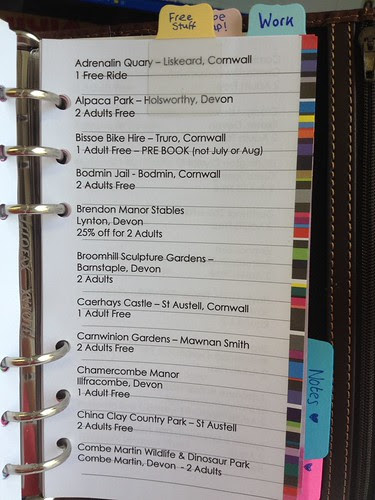 Free
Stuff
pe
up!
Work
Adrenalin Quary – Liskeard, Cornwall
1 Free Ride
Alpaca Park – Holsworthy, Devon
2 Adults Free
Bissoe Bike Hire – Truro, Cornwall
1 Adult Free – PRE BOOK (not July or Aug)
Bodmin Jail - Bodmin, Cornwall
2 Adults Free
Brendon Manor Stables
Lynton, Devon
25% off for 2 Adults
Broomhill Sculpture Gardens –
Barnstaple, Devon
2 Adults
Caerhays Castle – St Austell, Cornwall
1 Adult Free
Carnwinion Gardens – Mawnan Smith
2 Adults Free
Chamercombe Manor
Illfracombe, Devon
1 Adult Free
China Clay Country Park – St Austell
2 Adults Free
Combe Martin Wildlife & Dinosaur Park
Combe Martin, Devon - 2 Adults
Notes